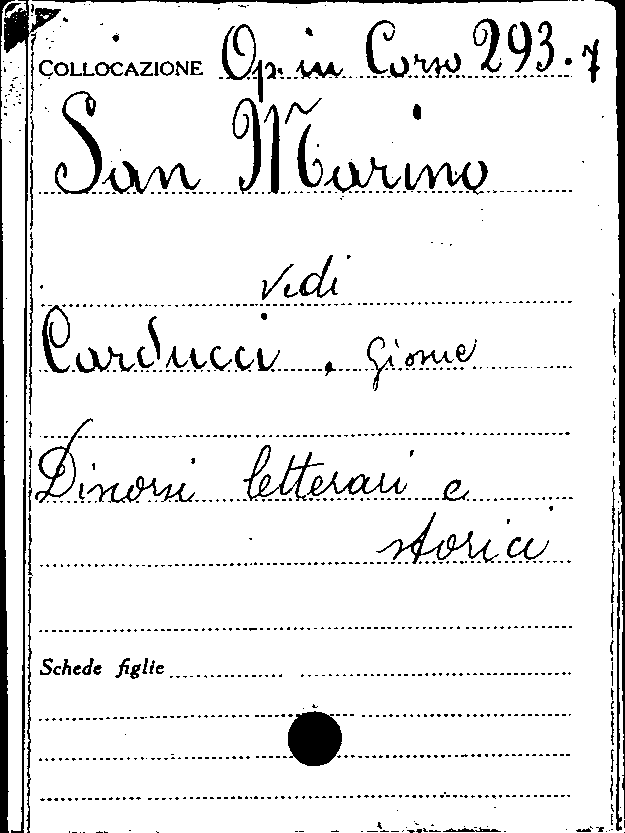 COLLOCAZIONE Op. in Corso 293.7
San Marino
vedi
Carducci, Giosue
Discorsi letterari e
storici
Schede figlie